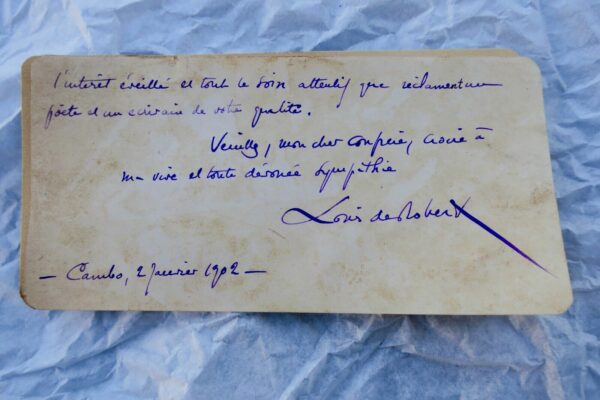 l'intérêt éveillé et tout le soin attentif que réclament un
poète et un écrivain de votre qualité.
Veuillez, mon cher confrère, croire à
ma vive et toute dévouée sympathie
Louis de Robert
— Cambo, 2 Janvier 1902 —